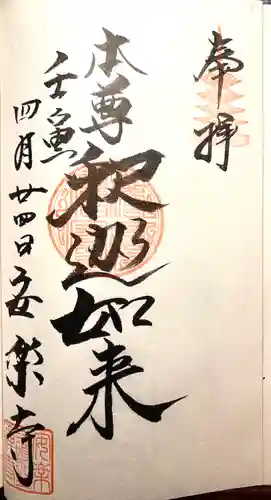 奉拝
本尊
釈迦如来
壬寅
四月廿四日 安楽寺